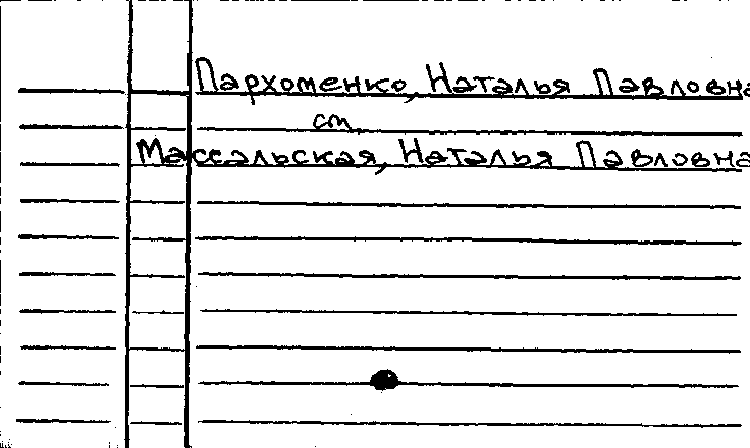 Пархоменко, Наталья Павловна
см.
Массальская, Наталья Павловна